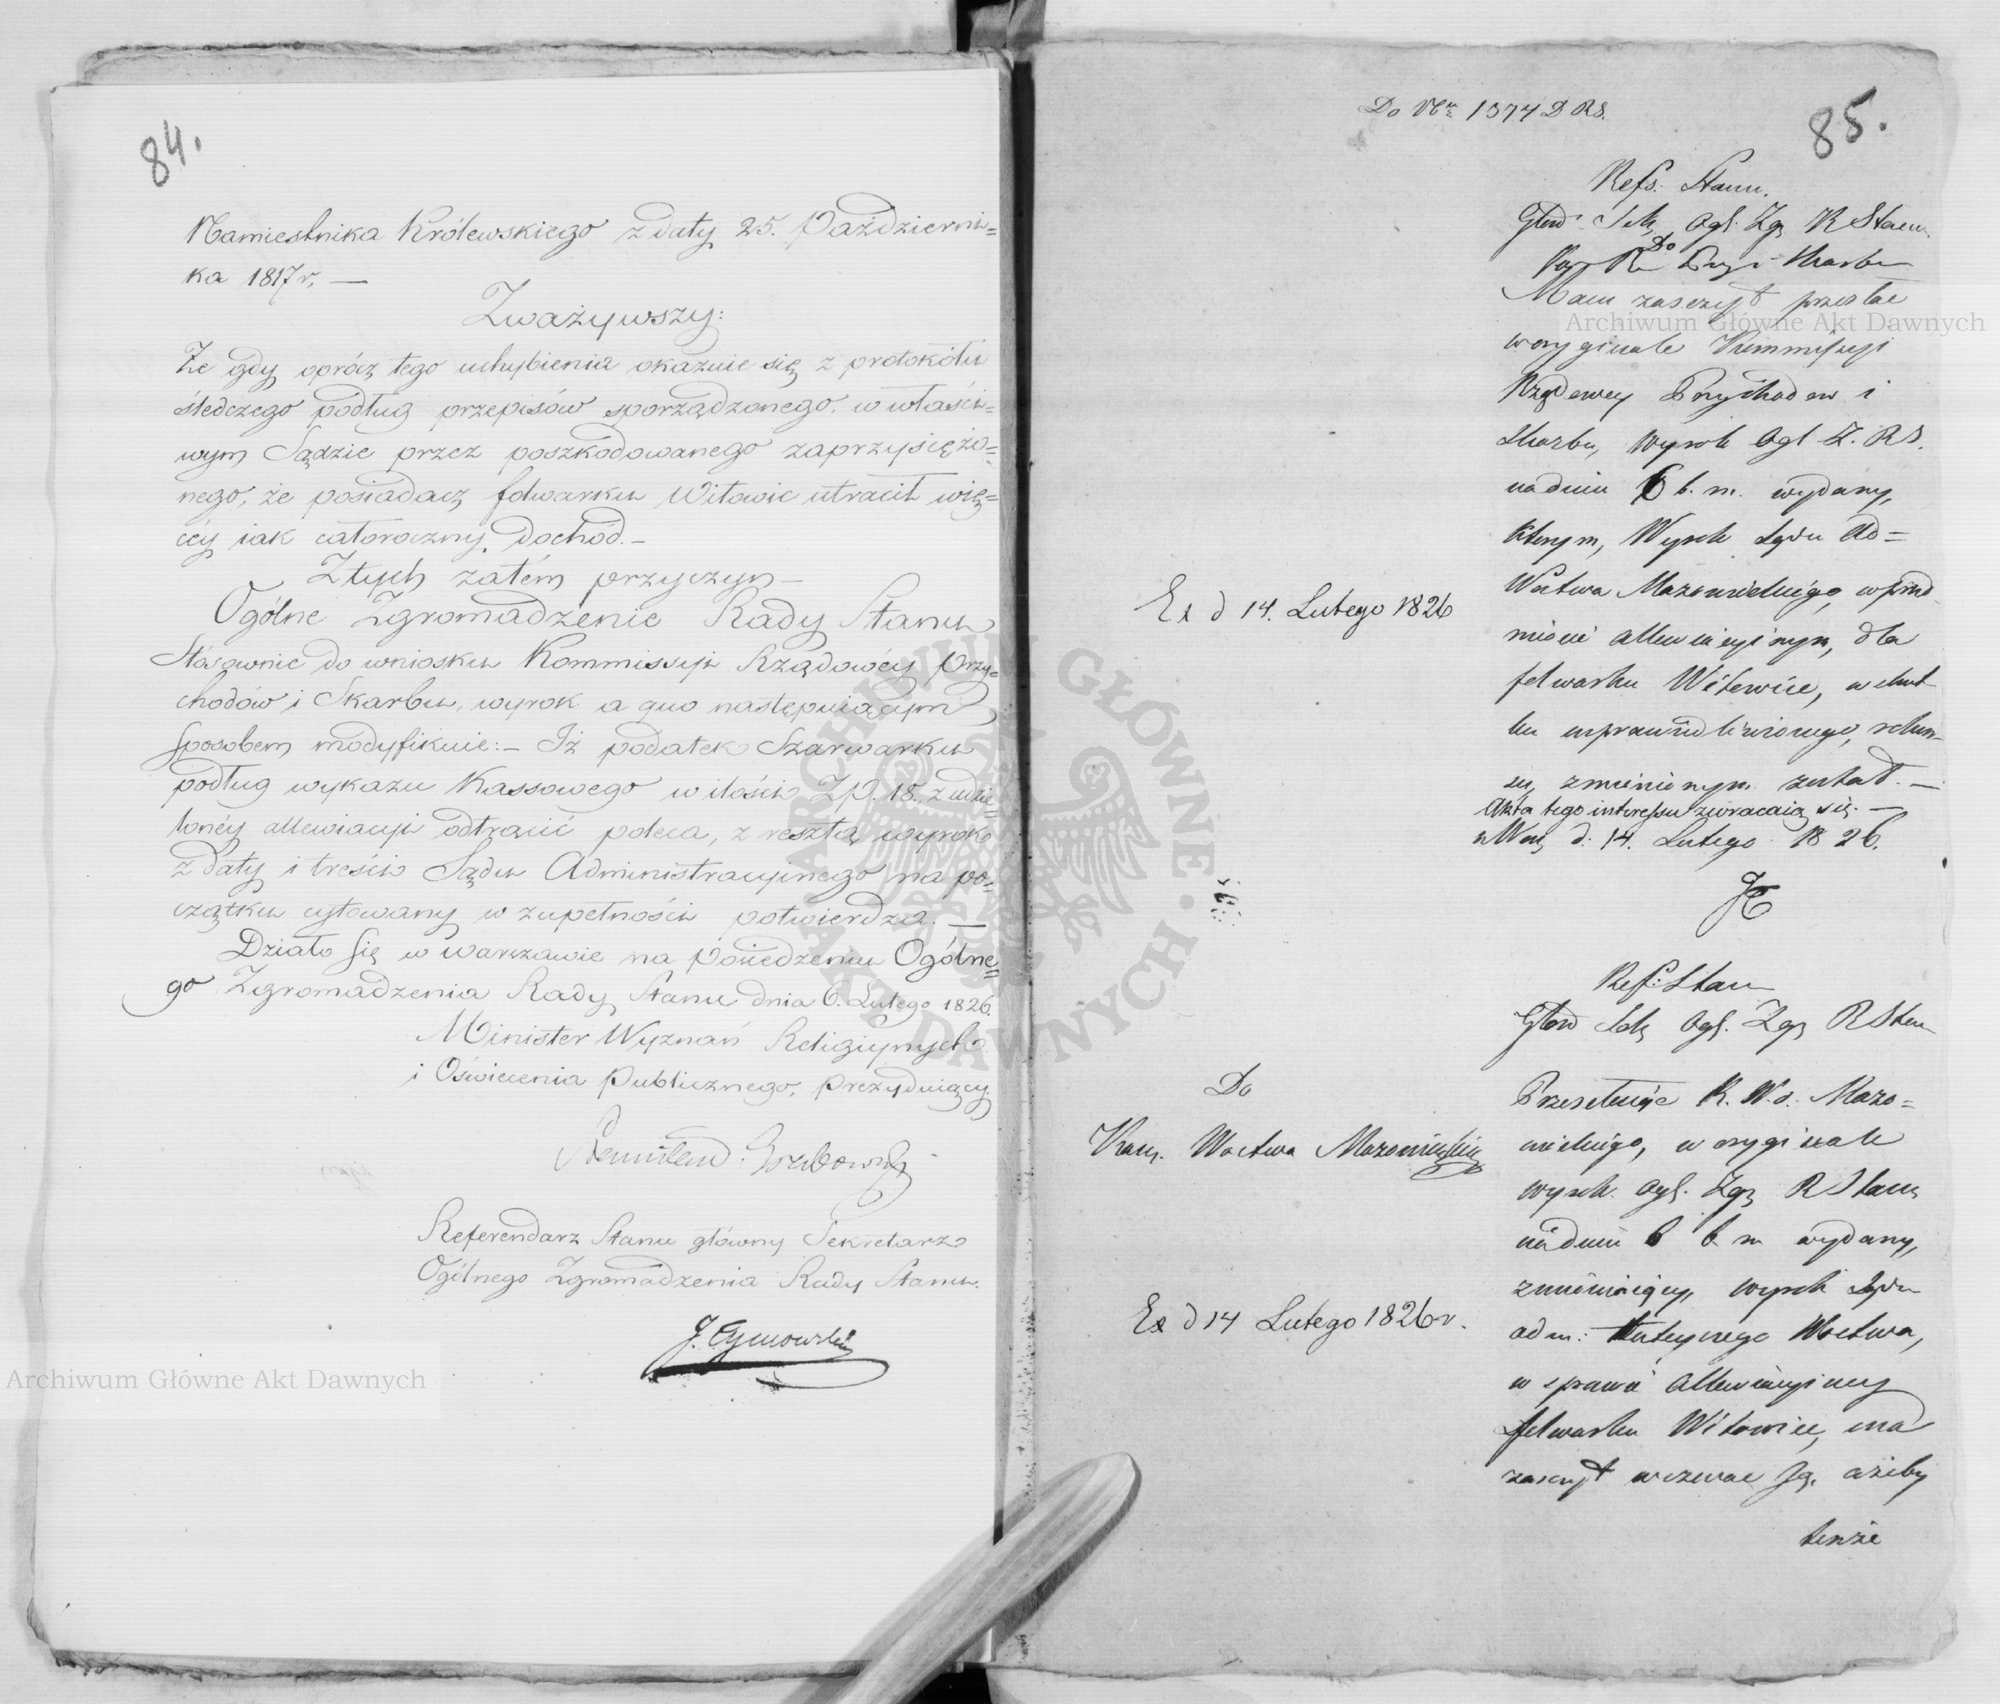 84.
Namiestnika Królewskiego z daty 25. Październi=
ka 1817 r. —
Zważywszy:
Że gdy oprócz tego uchybienia okazuie się z protokółu
śledczego podług przepisów sporządzonego, w właści=
wym Sądzie przez poszkodowanego zaprzysiężo=
nego, że posiadacz folwarku Witowic utracił wię=
céy iak całoroczny dochód. —
Z tych zatém przyczyn —
Ogólne Zgromadzenie Rady Stanu
Stósownie do wniosku Kommissyi Rządowéy Przy=
chodów i Skarbu, wyrok a quo następuiącym
sposobem modyfikuie: — Iż podatek Szarwarku
podług wykazu Kassowego w ilości Zp. 18. z udzie=
lonéy allewiacyi odtrącić poleca, z resztą wyrok
z daty i treści Sądu Administracyinego na po=
czątku cytowany w zupełności potwierdza. —
Działo się w Warszawie na Posiedzeniu Ogólne=
go Zgromadzenia Rady Stanu dnia 6. Lutego 1826.
Minister Wyznań Religiynych
i Oświecenia Publicznego, Prezyduiący
Grabowski
Referendarz Stanu główny Sekretarz
Ogólnego Zgromadzenia Rady Stanu.
Archiwum Główne Akt Dawnych
85.
Do 1374 D RS.
Refs. Stanu.
Głów Sek. Ogl. Zg. R Stanu
Do
Przy: i Skarbu
Mam zaszczyt przesłać
w oryginale Kommissyi
Rządowey Przychodow i
Skarbu, wyrok Ogl Z. RS.
na dniu 6 b. m. wydany,
którym, Wyrok Sądu Ad=
Wodztwa Mazowieckiego, w przed
miocie allewiacyinym, dla
folwarku Witowice, w skut
ku usprawiedliwionego,
zmienionym został. —
Akta tego interessu zwracaią się. —
w War. d. 14. Lutego 1826.
Ex d 14. Lutego 1826
Ref: Stan
Głow Sek. Ogl. Zg. R Stan
Do
Kom. Wodztwa Mazowieckie
Przesełaiąc K. W. Mazo=
wieckiego, w oryginale
wyrok Ogl. Zg. R Stanu
na dniu 6 b. m wydany,
zmieniaiący, wyrok Sądu
adm: tuteyszego Wodztwa,
w sprawie allewiacyiney
folwarku Witowice, ma
zaszczyt wezwać Ją, ażeby
tenże
Ex d 14 Lutego 1826 r.
Archiwum Główne Akt Dawnych
ARCHIWUM GŁÓWNE AKT DAWNYCH